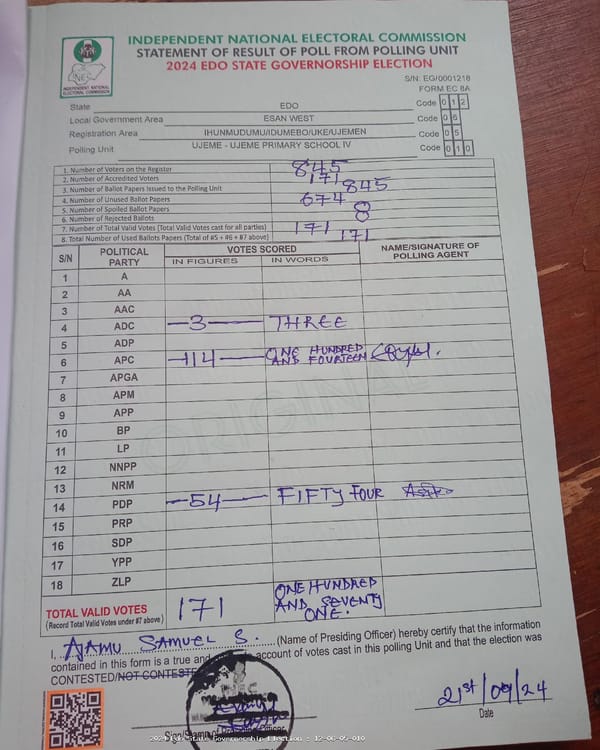 INDEPENDENT NATIONAL ELECTORAL COMMISSION
STATEMENT OF RESULT OF POLL FROM POLLING UNIT
2024 EDO STATE GOVERNORSHIP ELECTION
INDEPENDENT NATIONAL
ELECTORAL COMMISSION
S/N: EG/0001218
FORM EC 8A
State EDO Code 0 1 2
Local Government Area ESAN WEST Code 0 6
Registration Area IHUNMUDUMU/IDUMEBO/UKE/UJEMEN Code 0 5
Polling Unit UJEME - UJEME PRIMARY SCHOOL IV Code 0 1 0
1. Number of Voters on the Register 845
2. Number of Accredited Voters 171
3. Number of Ballot Papers Issued to the Polling Unit 845
4. Number of Unused Ballot Papers 674
5. Number of Spoiled Ballot Papers
6. Number of Rejected Ballots
7. Number of Total Valid Votes (Total Valid Votes cast for all parties) 171
8. Total Number of Used Ballots Papers (Total of #5 + #6 + #7 above) 171
S/N POLITICAL PARTY VOTES SCORED NAME/SIGNATURE OF POLLING AGENT
IN FIGURES IN WORDS
1 A
2 AA
3 AAC
4 ADC 3 THREE
5 ADP
6 APC 114 ONE HUNDRED AND FOURTEEN
7 APGA
8 APM
9 APP
10 BP
11 LP
12 NNPP
13 NRM
14 PDP 54 FIFTY FOUR
15 PRP
16 SDP
17 YPP
18 ZLP
TOTAL VALID VOTES 171 ONE HUNDRED AND SEVENTY ONE.
(Record Total Valid Votes under #7 above)
ORIGINAL
I, AJAMU SAMUEL S. (Name of Presiding Officer) hereby certify that the information
contained in this form is a true and account of votes cast in this polling Unit and that the election was
CONTESTED/NOT CONTESTED
21st/09/24
Date
2024 Edo State Governorship Election